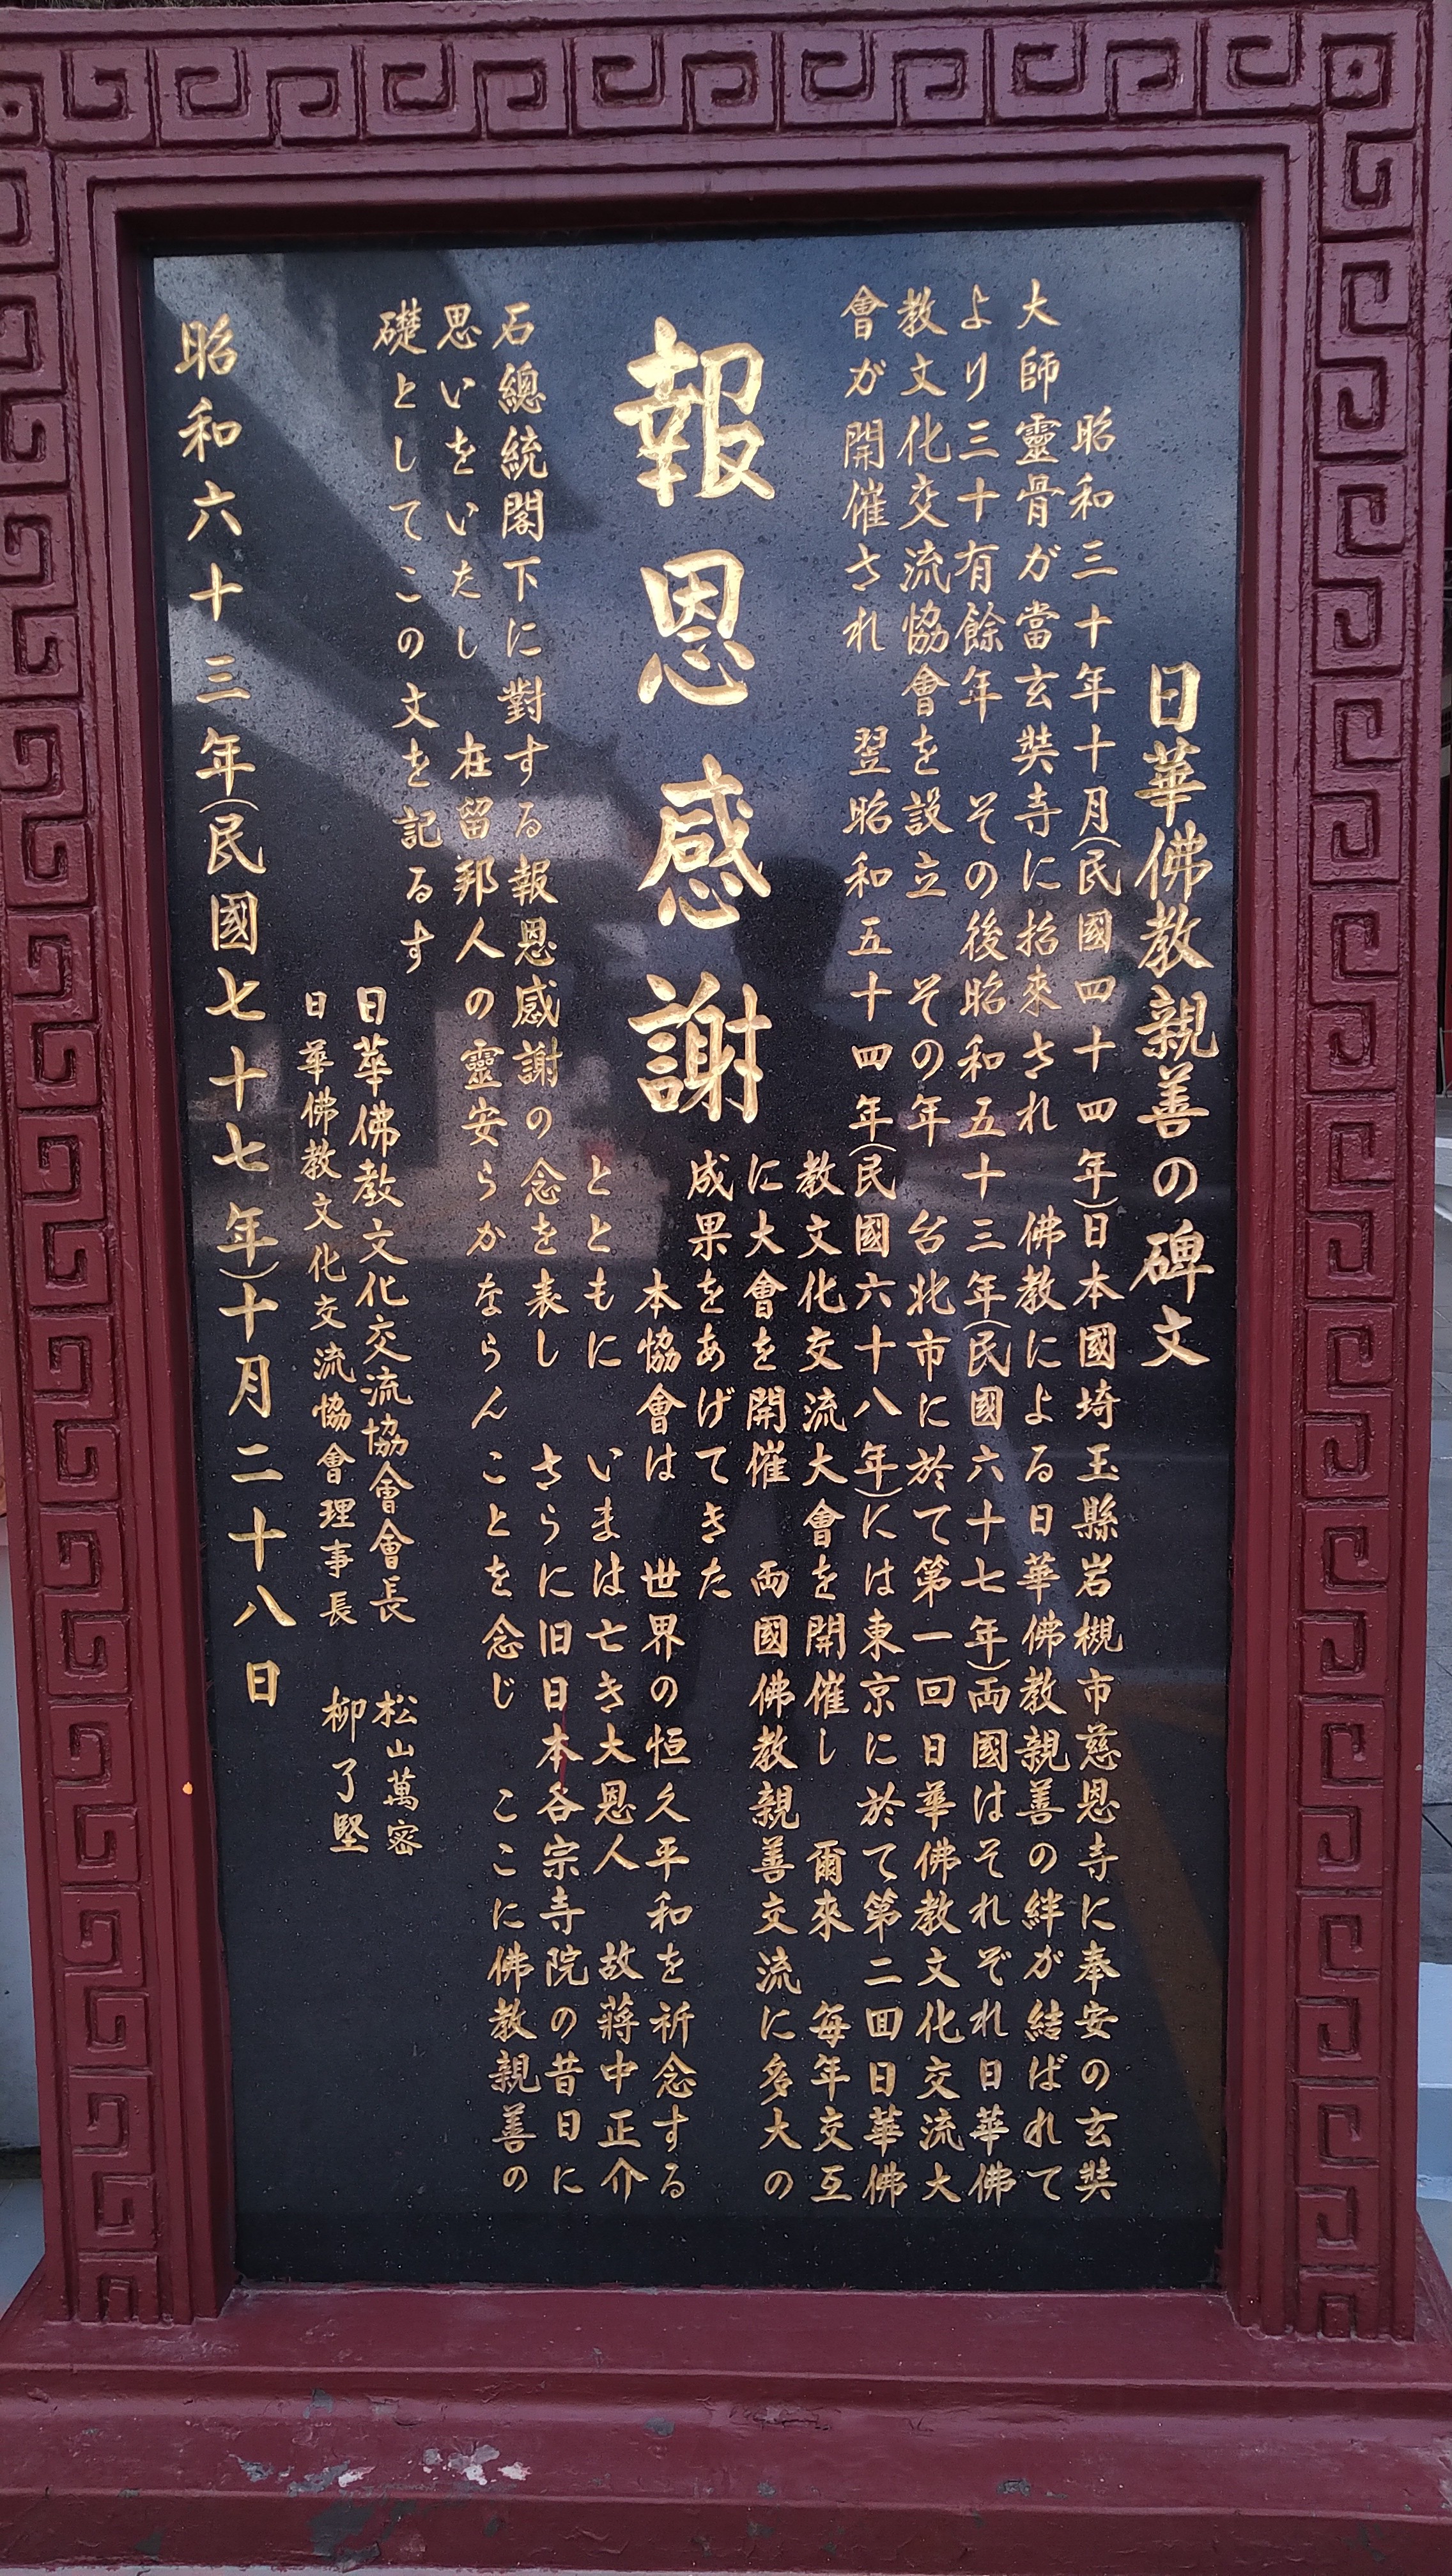 日華佛教親善の碑文
昭和三十年十月(民國四十四年)日本國埼玉縣岩槻市慈恩寺に奉安の玄奘
大師靈骨が當玄奘寺に抬來され　佛教による日華佛教親善の絆が結ばれて
より三十有餘年　その後昭和五十三年(民國六十七年)両國はそれぞれ日華佛
教文化交流協會を設立　その年　台北市に於て第一回日華佛教文化交流大
會が開催され　翌昭和五十四年(民國六十八年)には東京に於て第二回日華佛
教文化交流大會を開催し　爾來　每年交互
に大會を開催　両國佛教親善交流に多大の
成果をあげてきた
報恩感謝
本協會は　世界の恒久平和を祈念する
とともに　いまは亡き大恩人　故蔣中正介
石總統閣下に對する報恩感謝の念を表し　さらに旧日本各宗寺院の昔日に
思いをいたし　在留邦人の靈安らかならんことを念じ　ここに佛教親善の
礎としてこの文を記るす
日華佛教文化交流協會會長　松山萬密
日華佛教文化交流協會理事長　柳了堅
昭和六十三年(民國七十七年)十月二十八日